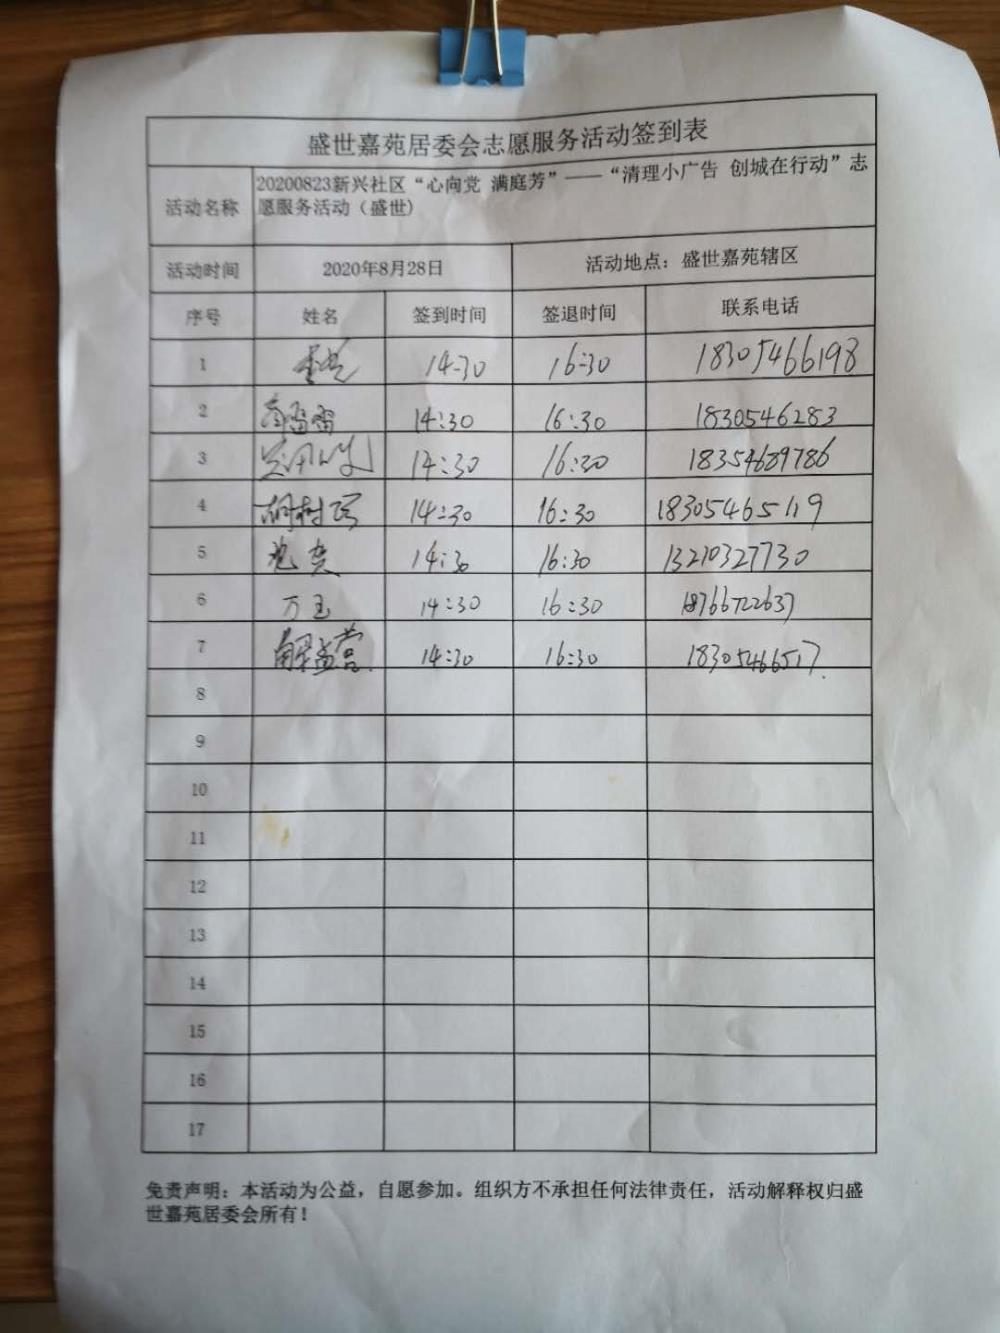 盛世嘉苑居委会志愿服务活动签到表
活动名称 20200823新兴社区“心向党 满庭芳”——“清理小广告 创城在行动”志
愿服务活动（盛世）
活动时间 2020年8月28日 活动地点：盛世嘉苑辖区
序号 姓名 签到时间 签退时间 联系电话
1 14-30 16:30 18305466198
2 14:30 16:30 1830546283
3 14:30 16:30 18354689786
4 14:30 16:30 18305465119
5 14:30 16:30 13210327730
6 万玉 14:30 16:30 18766722637
7 解益营 14:30 16:30 18305466517
8
9
10
11
12
13
14
15
16
17
免责声明：本活动为公益，自愿参加。组织方不承担任何法律责任，活动解释权归盛
世嘉苑居委会所有！